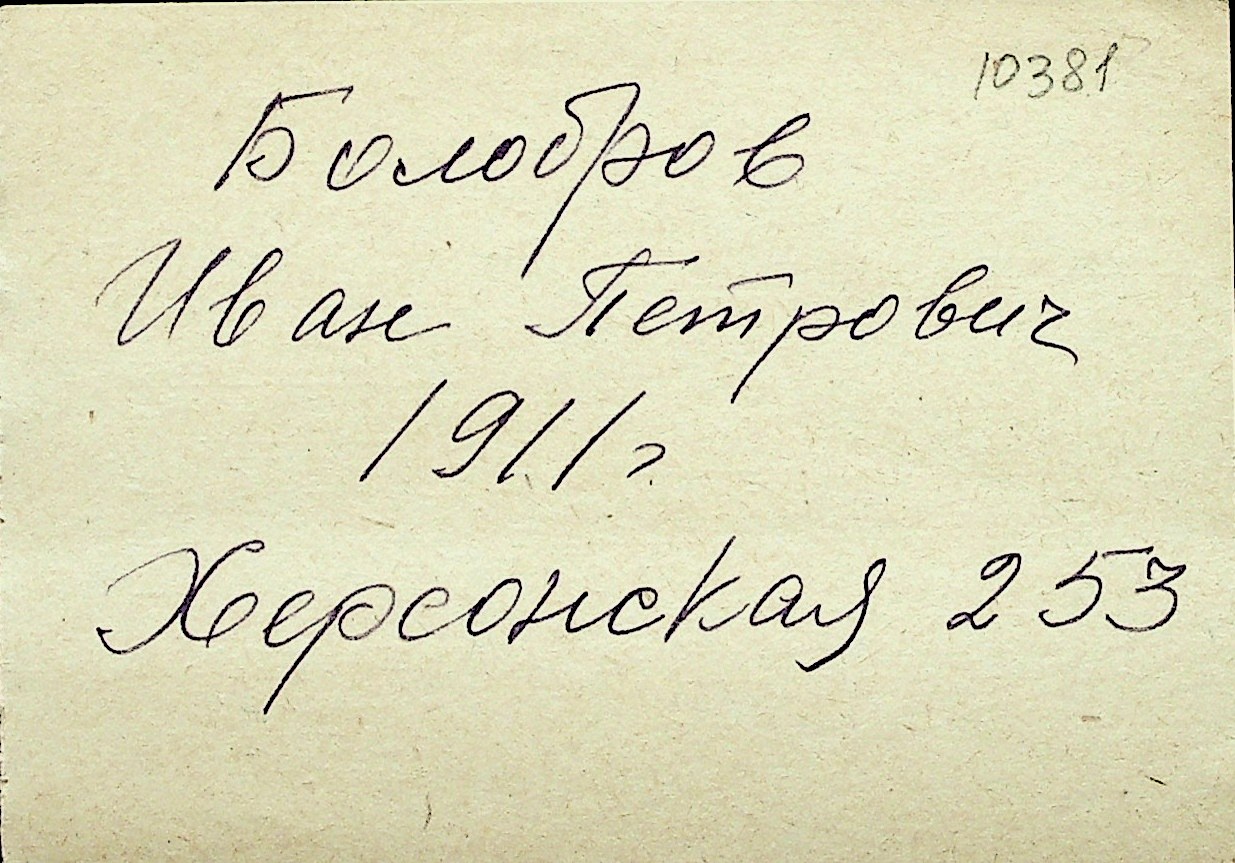 10381
Болобров
Иван Петрович
1911г.
Херсонская 253